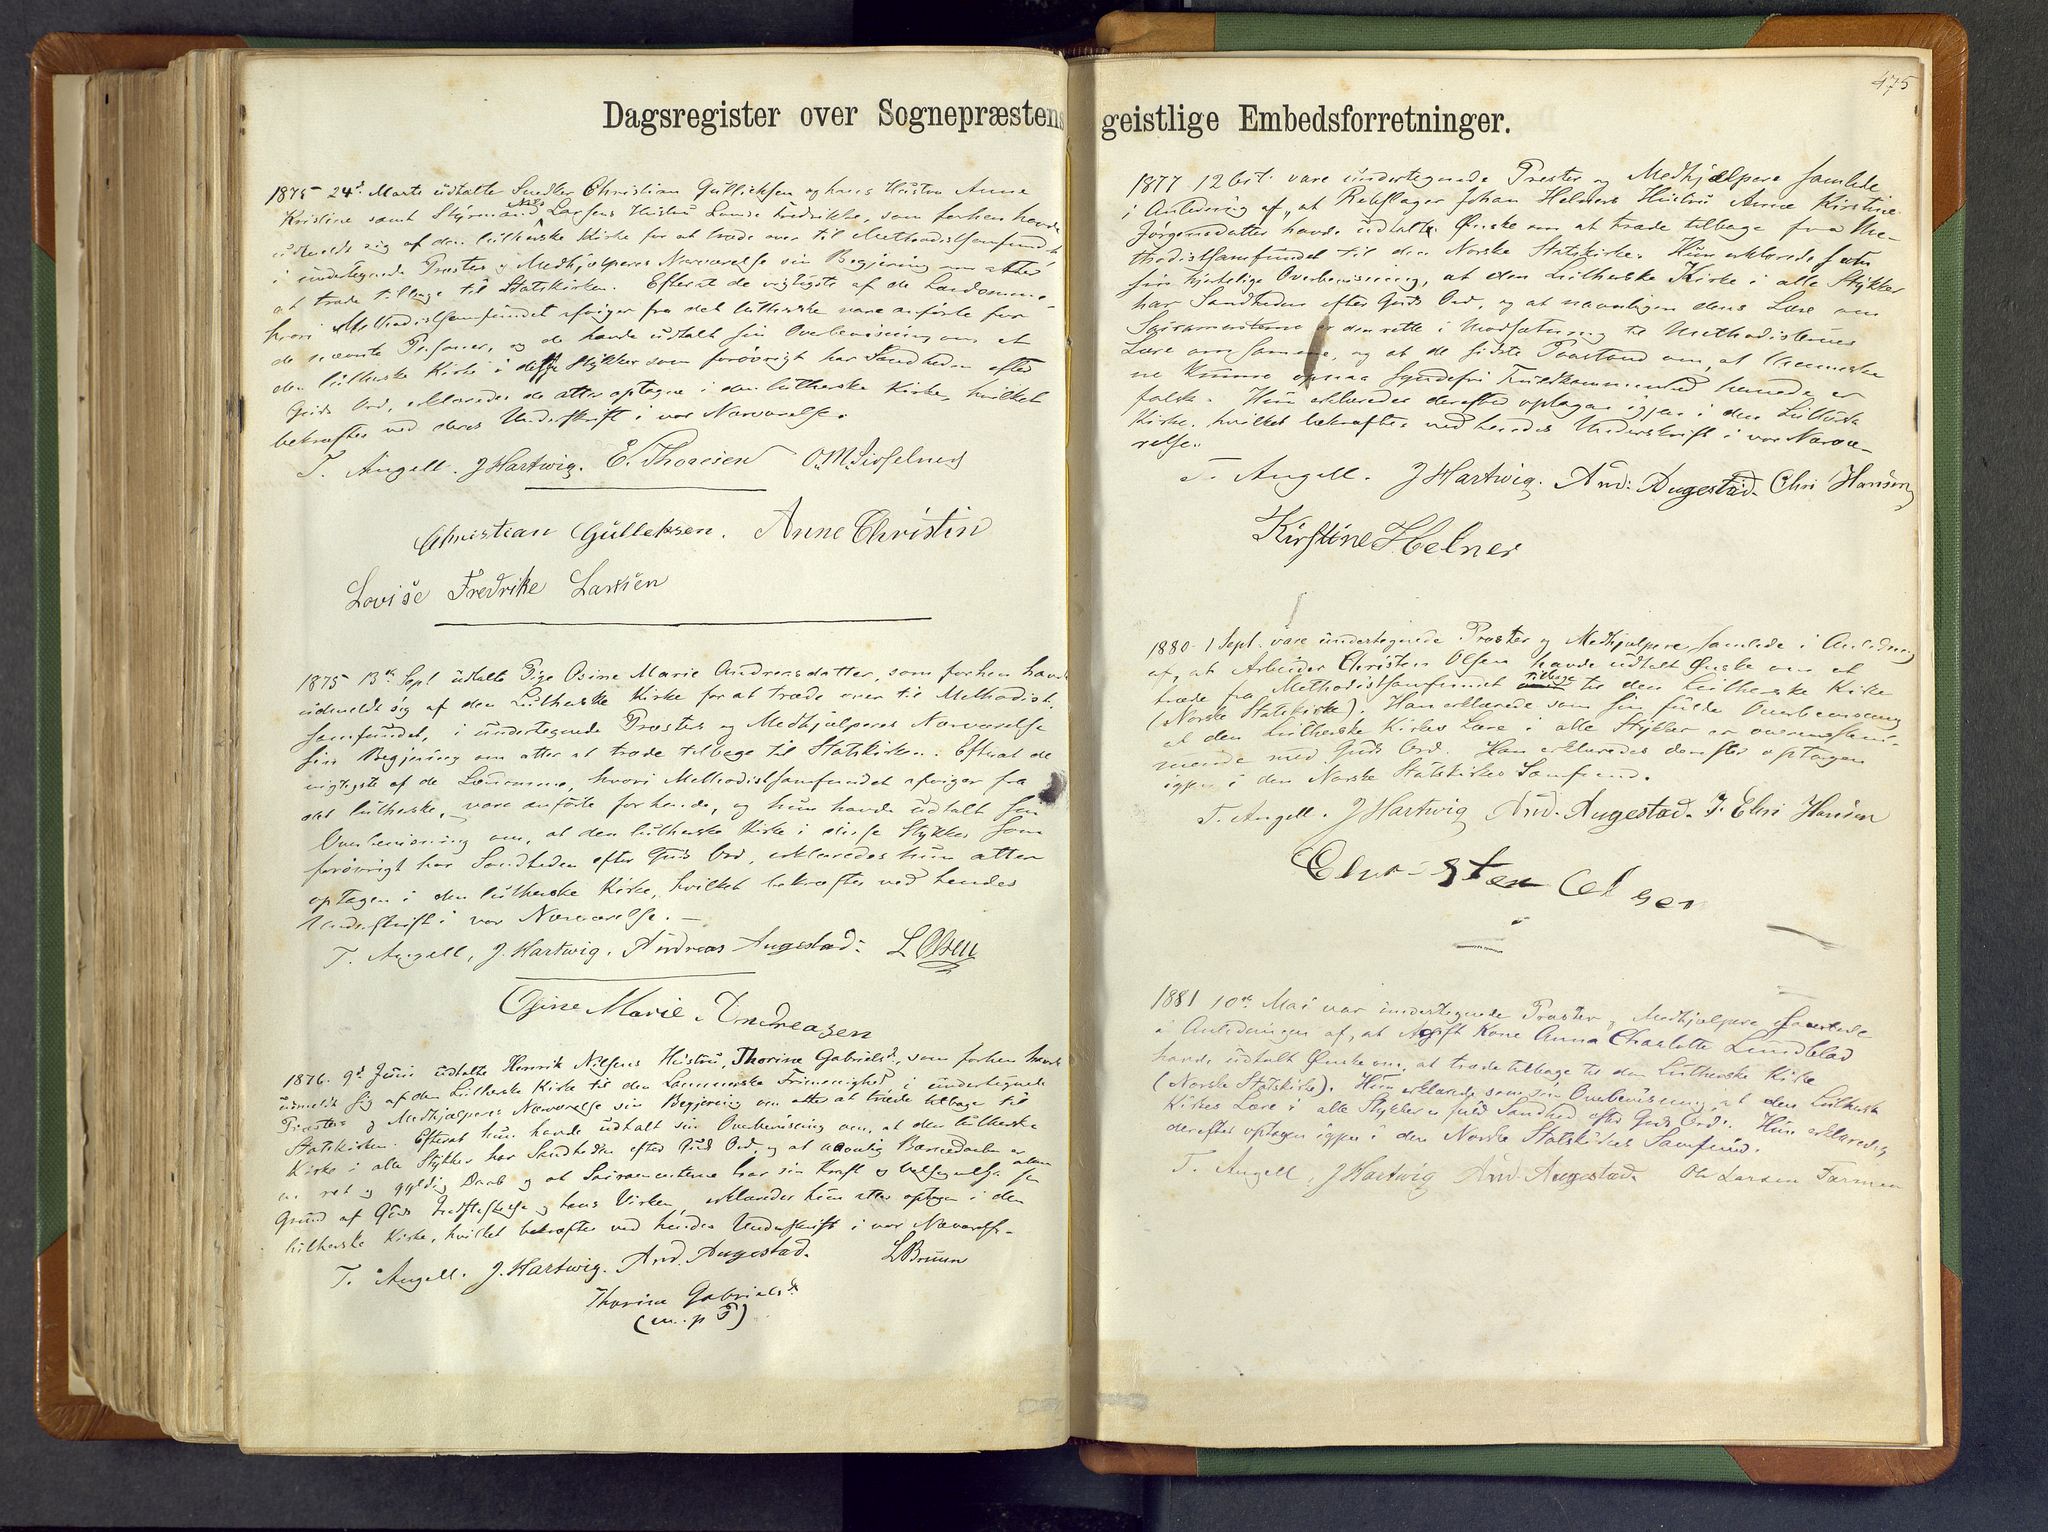 Dagsregister over Sognepræstens geistlige Embedsforretninger.
475
1875 24de Marts udtalte Snedker Christian Gulliksen og hans Hustru Anne
Kristine samt Styrmand Nils Larsens Hustru Lovise Fredrikke, som forhen havde
udmeldt sig af den lutherske Kirke for at træde over til Methodistsamfundet
i undertegnede Præster og Medhjælperes Nærværelse sin Begjering om atter
at træde tilbage til Statskirken. Efterat de vigtigste af de Lærdomme,
hvori Methodistsamfundet afviger fra det lutherske vare anførte for
de nævnte Personer, og de havde udtalt sin Overbevisning om at
den lutherske Kirke i disse Stykker som forøvrigt har Sandheden efter
Guds Ord, erklæredes de atter optagne i den lutherske Kirke, hvilket
bekræftes ved deres Underskrift i vor Nærværelse.
T. Angell. J Hartwig. E. Thoresen O. M.
Christian Gulleksen. Anne Christin
Lovise Fredrike Larsen
1875 13de Sept udtalte Pige Osine Marie Andreasdatter, som forhen havde
udmeldt sig af den Lutherske Kirke for at træde over til Methodist-
samfundet, i undertegnede Præster og Medhjælperes Nærværelse
sin Begjering om atter at træde tilbage til Statskirken. Efterat de
vigtigste af de Lærdomme, hvori Methodistsamfundet afviger fra
det lutherske, vare anførte for hende, og hun havde udtalt sin
Overbevisning om, at den lutherske Kirke i disse Stykker som
forøvrigt har Sandheden efter Guds Ord, erklæredes hun atter
optagen i den lutherske Kirke, hvilket bekræftes ved hendes
Underskrift i vor Nærværelse. —
T. Angell, J. Hartwig. Andreas Augestad. L Olsen
Osine Marie Andreasen
1876. 9de Juni udtalte Henrik Nilsens Hustru, Thorine Gabrielsd., som forhen havde
udmeldt sig af den Lutherske Kirke til den Lammerske Frimenighed, i undertegnede
Præster og Medhjælperes Nærværelse sin Begjering om atter at træde tilbage til
Statskirken. Efterat hun havde udtalt sin Overbevisning om, at den lutherske
Kirke i alle Stykker har Sandheden efter Guds Ord, og at navnlig Barnedaaben er
en ret og gyldig Daab og at Sacramenterne har sin Kraft og Velsignelse alene paa
Grund af Guds Indstiftelse og hans Virken, erklæredes hun atter optagen i den
lutherske Kirke, hvilket bekræftes ved hendes Underskrift i vor Nærværelse.
T. Angell. J. Hartwig. And. Augestad. L Bruun
Thorine Gabrielsd.
(m. p. P)
1877 12 Oct. vare undertegnede Præster og Medhjælpere samlede
i Anledning af, at Rebslager Johan Helners Hustru Anne Kirstine
Jørgensdatter havde udtalt Ønske om at træde tilbage fra Me-
thodistsamfundet til den Norske Statskirke. Hun erklærede som
sin hjertelige Overbevisning, at den Lutherske Kirke i alle Stykker
har Sandheden efter Guds Ord, og at navnligen dens Lære om
Sacramenterne er den rette i Modsætning til Methodisternes
Lære om samme, og at de sidstes Paastand om, at Mennesk-
ne kunne opnaa syndefri Fuldkommenhed hernede er
falsk. Hun erklæredes derefter optagen igjen i den Lutherske
Kirke, hvilket bekræftes ved hendes Underskrift i vor Nærvæ-
relse.
T. Angell. J Hartwig. And: Augestad. Chri Hansen
Kirstine Helner
1880 1 Sept. vare undertegnede Præster og Medhjælpere samlede i Anledning
af, at Arbeider Christen Olsen havde udtalt Ønske om at
træde fra Methodistsamfundet tilbage til den Lutherske Kirke
(Norske Statskirke). Han erklærede som sin fulde Overbevisning
at den Lutherske Kirkes Lære i alle Stykker er overensstem-
mende med Guds Ord. Han erklæredes derefter optagen
igjen i den Norske Statskirkes Samfund.
T. Angell. J Hartwig And. Augestad. J. Chri Hansen
Christen Olsen
1881 10de Mai var undertegnede Præster og Medhjælpere samlede
i Anledningen af, at gift Kone Anna Charlotte Lundblad
havde udtalt Ønske om, at træde tilbage til den Lutherske Kirke
(Norske Statskirke). Hun erklærede som sin Overbevisning, at den Lutherske
Kirkes Lære i alle Stykker er fuld Sandhed efter Guds Ord. Hun erklæredes
derefter optagen igjen i den Norske Statskirkes Samfund.
T. Angell, J Hartwig And. Augestad. Ole Larsen Farmen